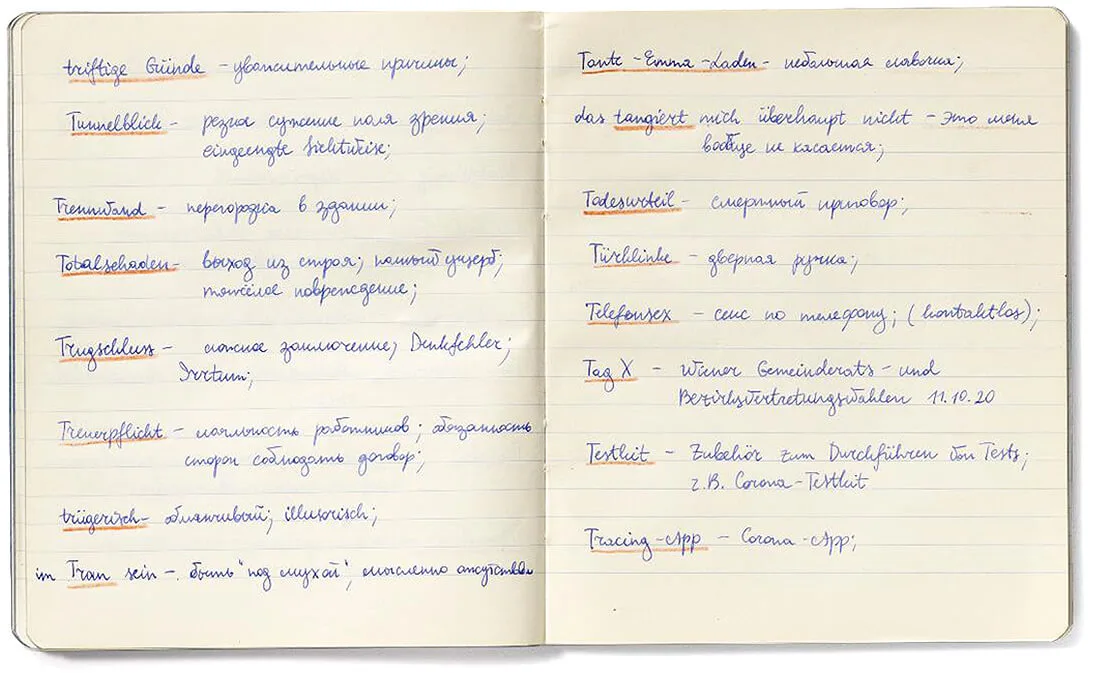 triftige Gründe - уважительные причины;
Tunnelblick - резкое сужение поля зрения;
eingeengte Sichtweise;
Trennwand - перегородка в здании;
Totalschaden - выход из строя; полный ущерб;
тяжёлое повреждение;
Trugschluss - ложное заключение, Denkfehler;
Irrtum;
Treuepflicht - лояльность работников; обязанность
сторон соблюдать договор;
trügerisch - обманчивый; illusorisch;
im Tran sein - быть "под мухой", мысленно отсутствов
Tante-Emma-Laden - небольшая лавочка;
das tangiert mich überhaupt nicht - это меня
вообще не касается;
Todesurteil - смертный приговор;
Türklinke - дверная ручка;
Telefonsex - секс по телефону; (kontaktlos);
Tag X - Wiener Gemeinderats- und
Bezirksvertretungswahlen 11.10.20
Testkit - Zubehör zum Durchführen von Tests;
z.B. Corona-Testkit
Tracing-App - Corona-App;